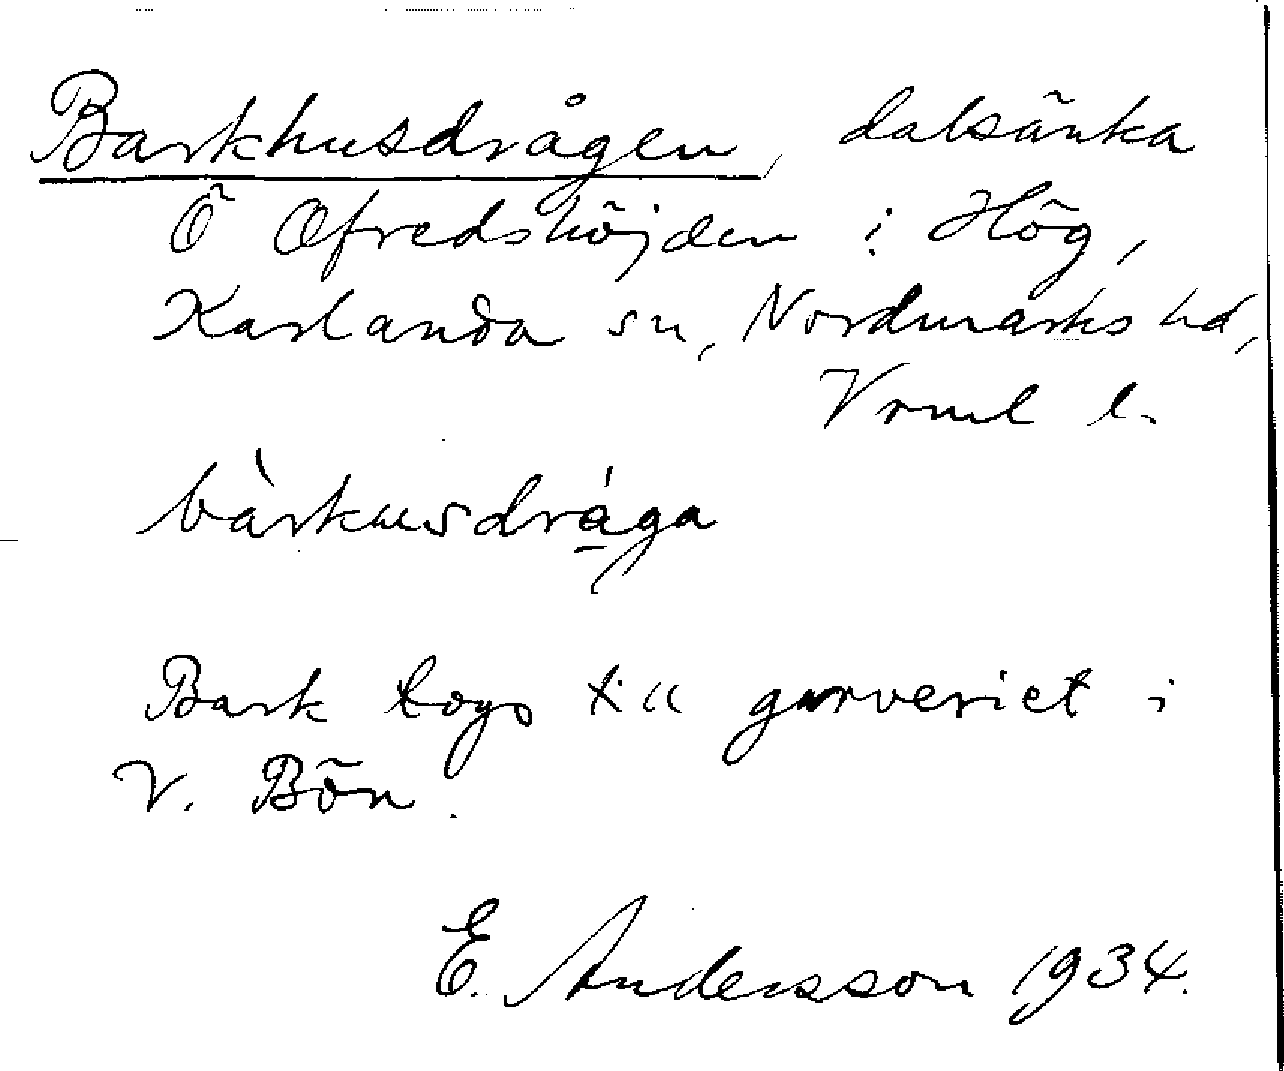 Barkhusdrågen, dalsänka
Ö Ofredshöjden i Hög,
Karlanda sn, Nordmarks hd,
Vrml l.
bàrkusdrága
Bark togs till garveriet i
V. Bön.
E. Andersson 1934.